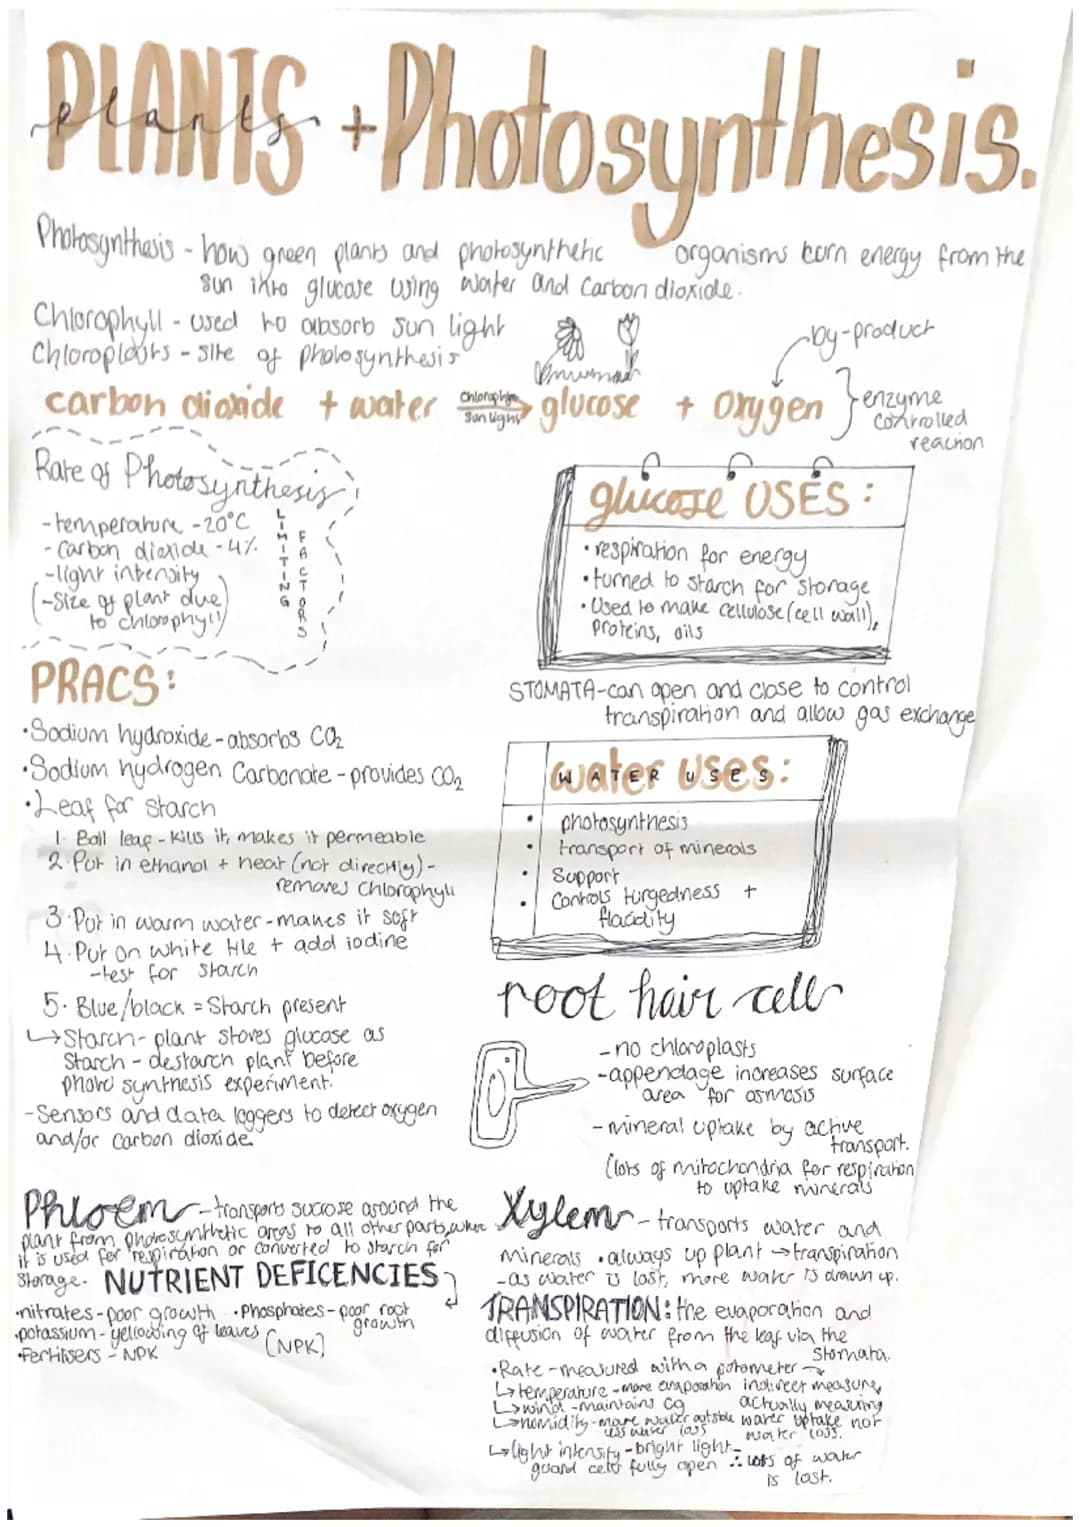 PLANTS + Photosynthesis.
plants
Photosynthesis - how green plants and photosynthetic organisms turn energy from the
sun into glucose using water and Carbon dioxide.
Chlorophyll - used to absorb sun light
Chloroplasts - site of photosynthesis
by-product
carbon dioxide + water Chlorophyll Sun light glucose + Oxygen
enzyme
controlled
reaction
Rate of Photosynthesis
LIMITING FACTORS
-temperature -20°C
-Carbon dioxide -4%
-light intensity
(-Size of plant due
to chlorophyll)
glucose USES:
•respiration for energy
•turned to starch for storage
•Used to make cellulose (cell wall),
Proteins, oils
STOMATA-can open and close to control
transpiration and allow gas exchange
PRACS:
•Sodium hydroxide - absorbs CO₂
•Sodium hydrogen Carbonate - provides CO₂
•Leaf for starch
1. Boil leaf - kills it, makes it permeable
2. Put in ethanol + heat (not directly) -
removes Chlorophyll
3. Put in warm water - makes it soft
4. Put on white tile + add iodine
-test for starch
5. Blue/black = Starch present
↳Starch- plant stores glucose as
Starch - destarch plant before
photo synthesis experiment.
-Sensors and data loggers to detect oxygen
and/or Carbon dioxide.
water uses:
WATER uses
• photosynthesis
• transport of minerals
• Support
• Controls turgedness +
flacidity
root hair cell
-no chloroplasts
-appendage increases surface
area for osmosis
-mineral uptake by active
transport.
(lots of mitochondria for respiration
to uptake minerals
Phloem -transports sucrose around the
plant from photosynthetic areas to all other parts, where
it is used for respiration or converted to starch for
storage.
NUTRIENT DEFICENCIES
•nitrates-poor growth •Phosphates-poor root
growth
•potassium-yellowing of leaves
•Fertilisers - NPK (NPK)
Xylem -transports water and
minerals •always up plant →transpiration
-as water is lost, more water is drawn up.
TRANSPIRATION: the evaporation and
diffusion of water from the leaf via the
Stomata.
•Rate -measured with a potometer →
indirect measure,
actually measuring
water uptake not
water loss.
↳temperature -more evaporation
↳wind -maintains cg
↳humidity-more water outside
less water loss
↳light intensity-bright light-
guard cells fully open ∴ lots of water
is lost.